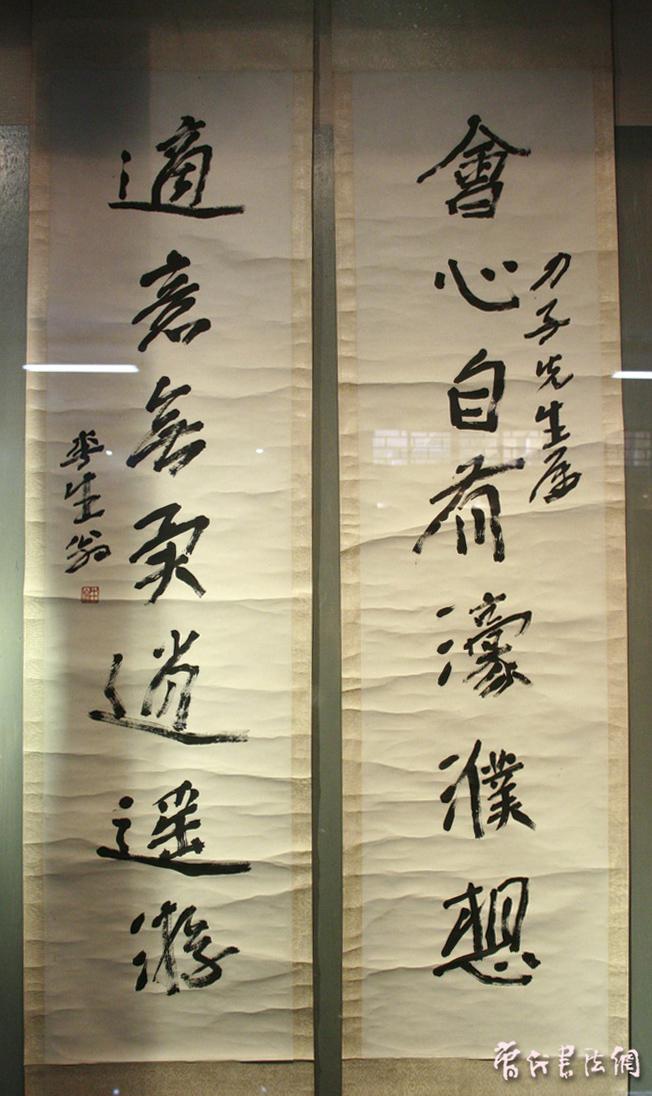 會心自有濠濮想
力子先生属
適意無逍遥游
李生翁
書法網